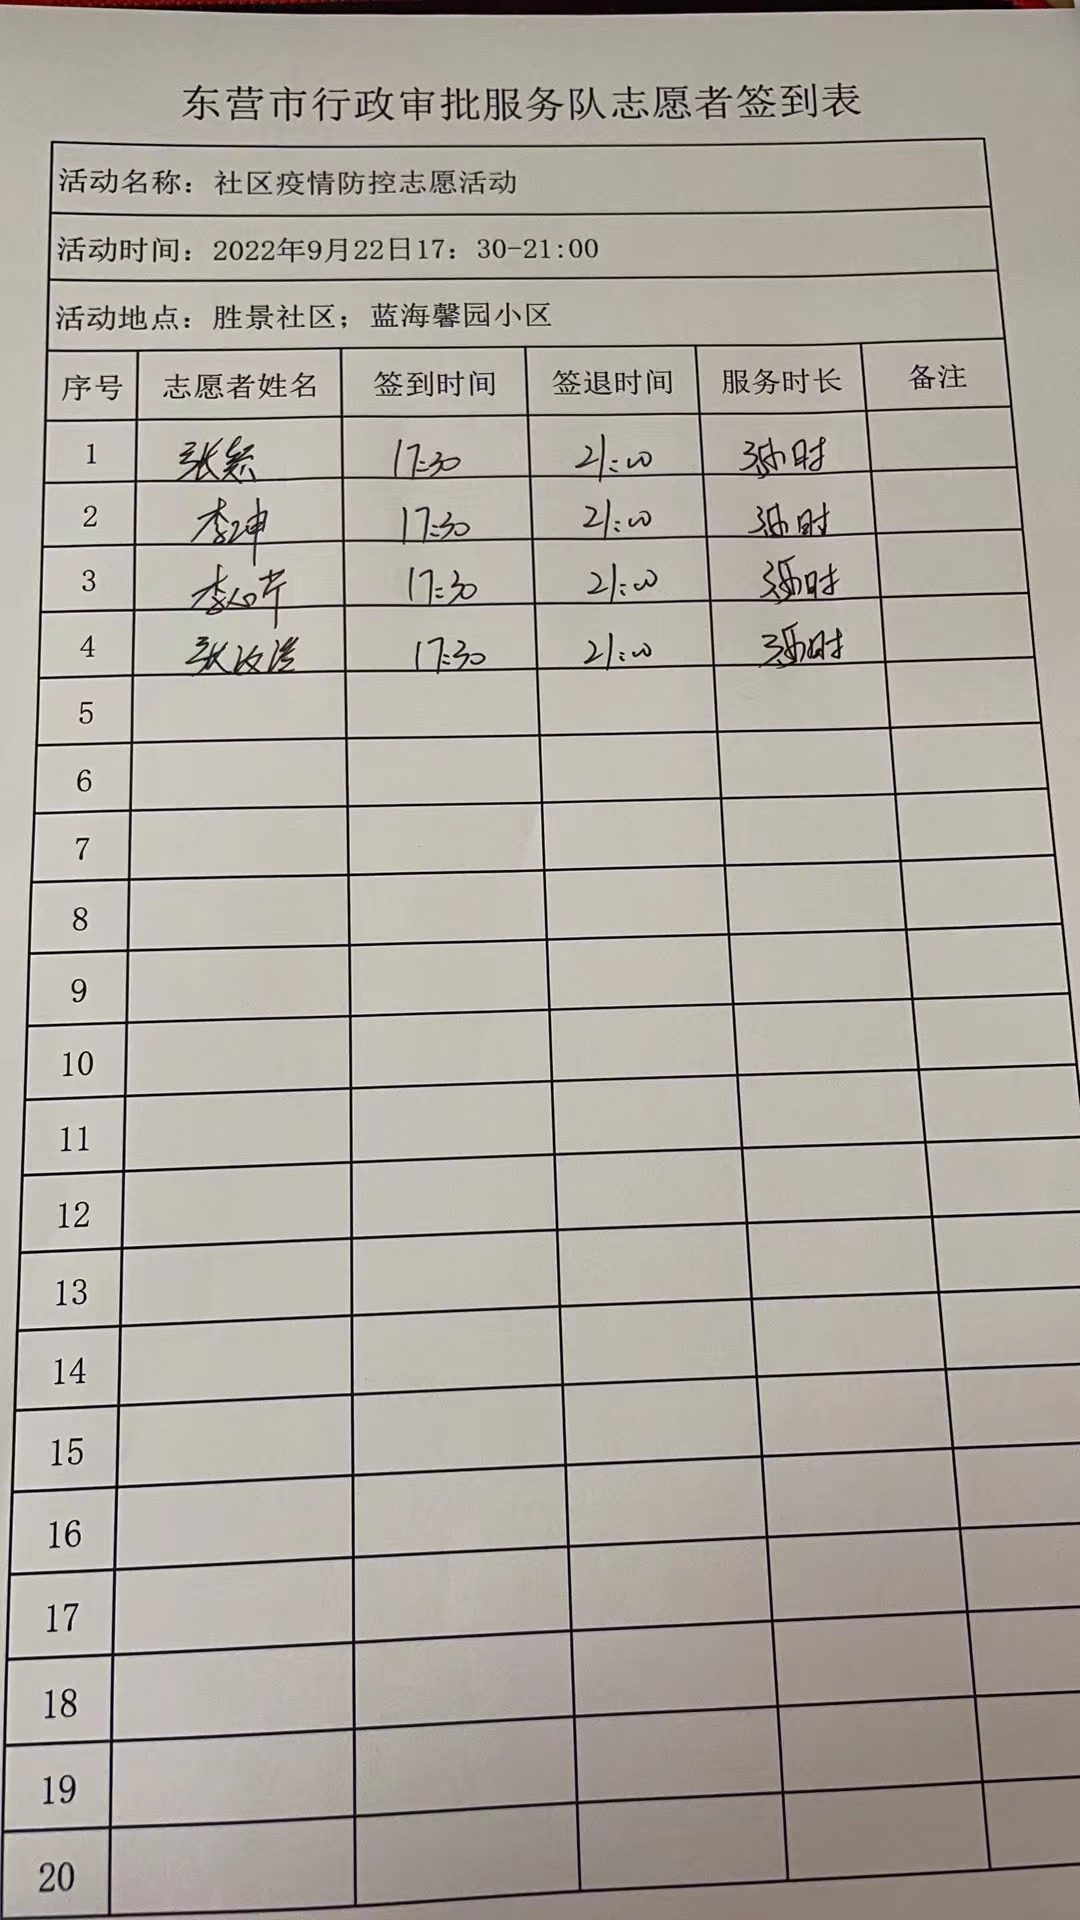 东营市行政审批服务队志愿者签到表
活动名称：社区疫情防控志愿活动
活动时间：2022年9月22日17：30-21:00
活动地点：胜景社区；蓝海馨园小区
序号 志愿者姓名 签到时间 签退时间 服务时长 备注
1 张颖 17:30 21:00 时
2 李坤 17:30 21:00 时
3 李 17:30 21:00 时
4 张 17:30 21:00 时
5
6
7
8
9
10
11
12
13
14
15
16
17
18
19
20